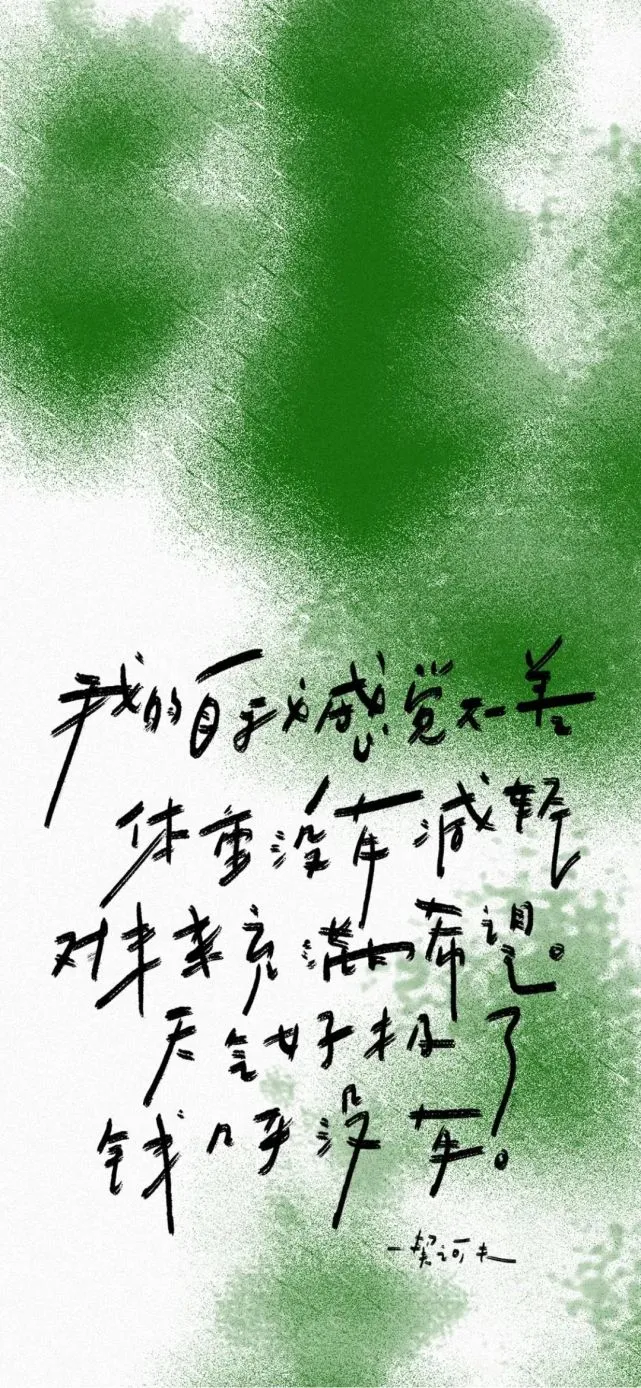 我的自我感觉不差
体重没有减轻
对未来充满希望。
天气好极了
钱几乎没有。
—契诃夫